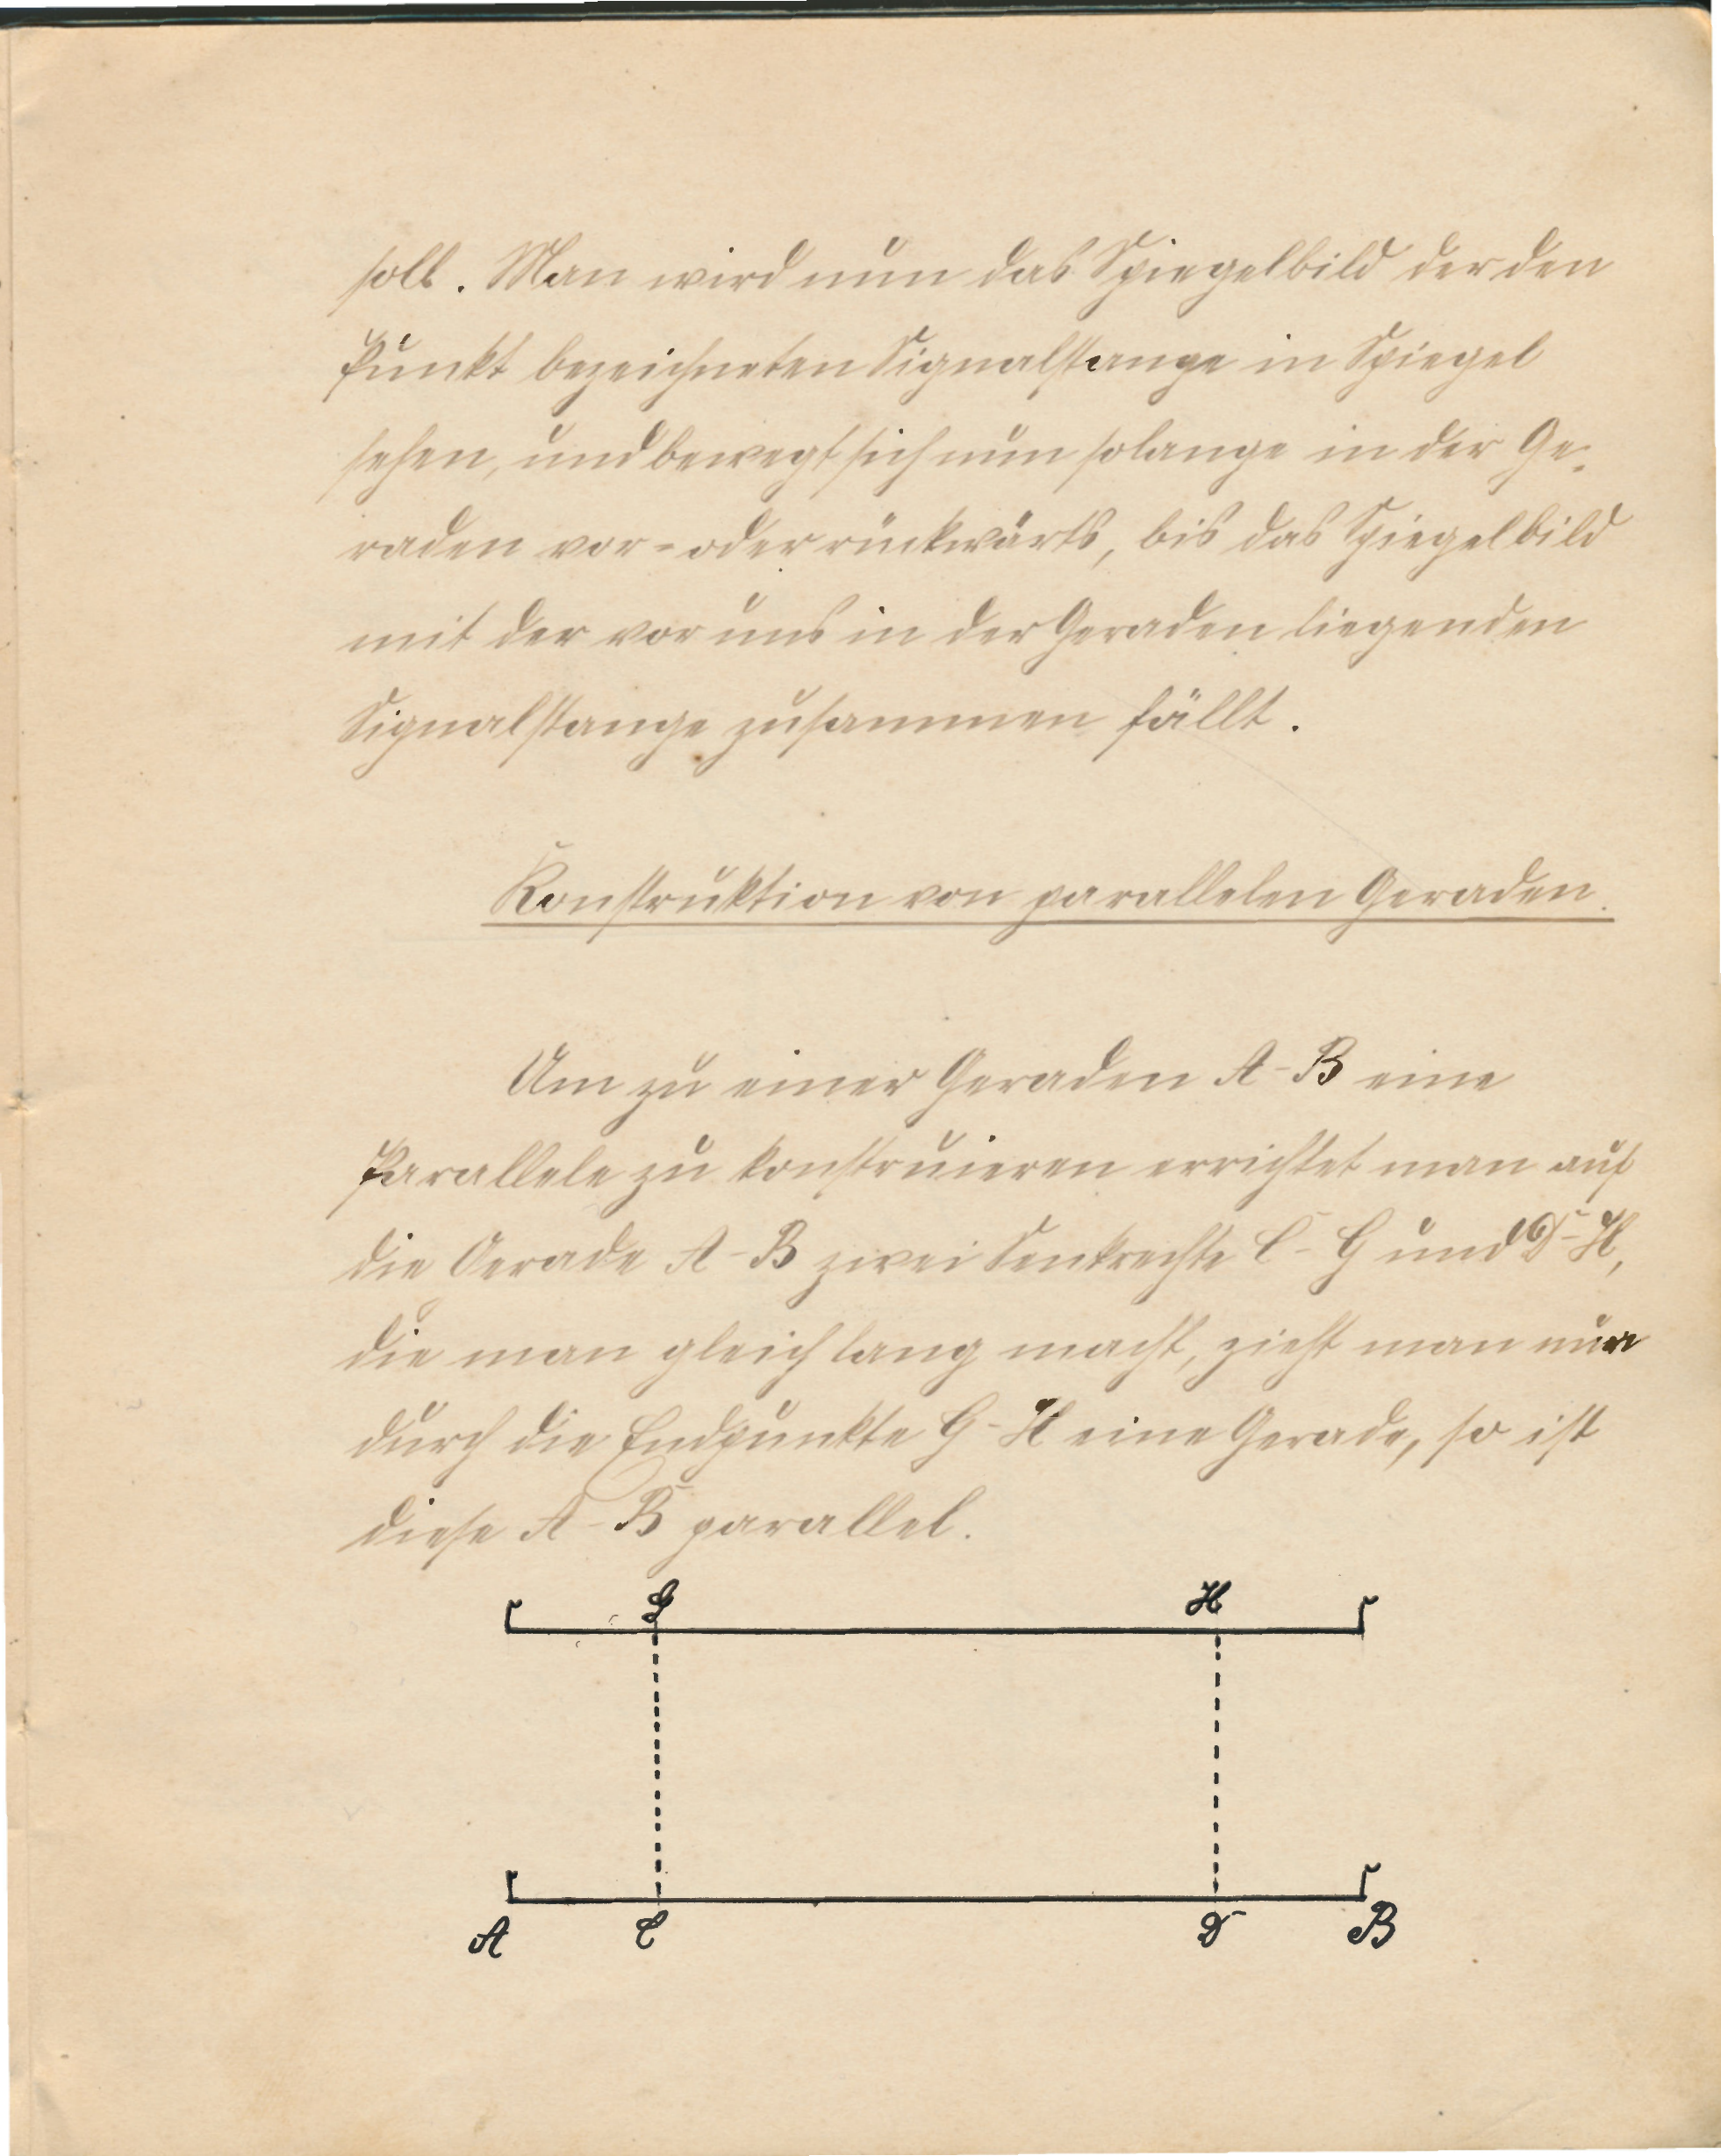 soll. Man wird nun das Spiegelbild der den
Punkt bezeichneten Signalstange in Spiegel
sehen, und bewegt sich nun solange in der Ge-
raden vor- oder rückwärts, bis das Spiegelbild
mit der vor uns in der Geraden liegenden
Signalstange zusammen fällt.
Konstruktion von parallelen Geraden.
Um zu einer Geraden A-B eine
Parallele zu konstruieren errichtet man auf
die Gerade A-B zwei Senkrechte C-G und D-H,
die man gleich lang macht, zieht man nun
durch die Endpunkte G-H eine Gerade, so ist
diese A-B parallel.
G H
A C D B